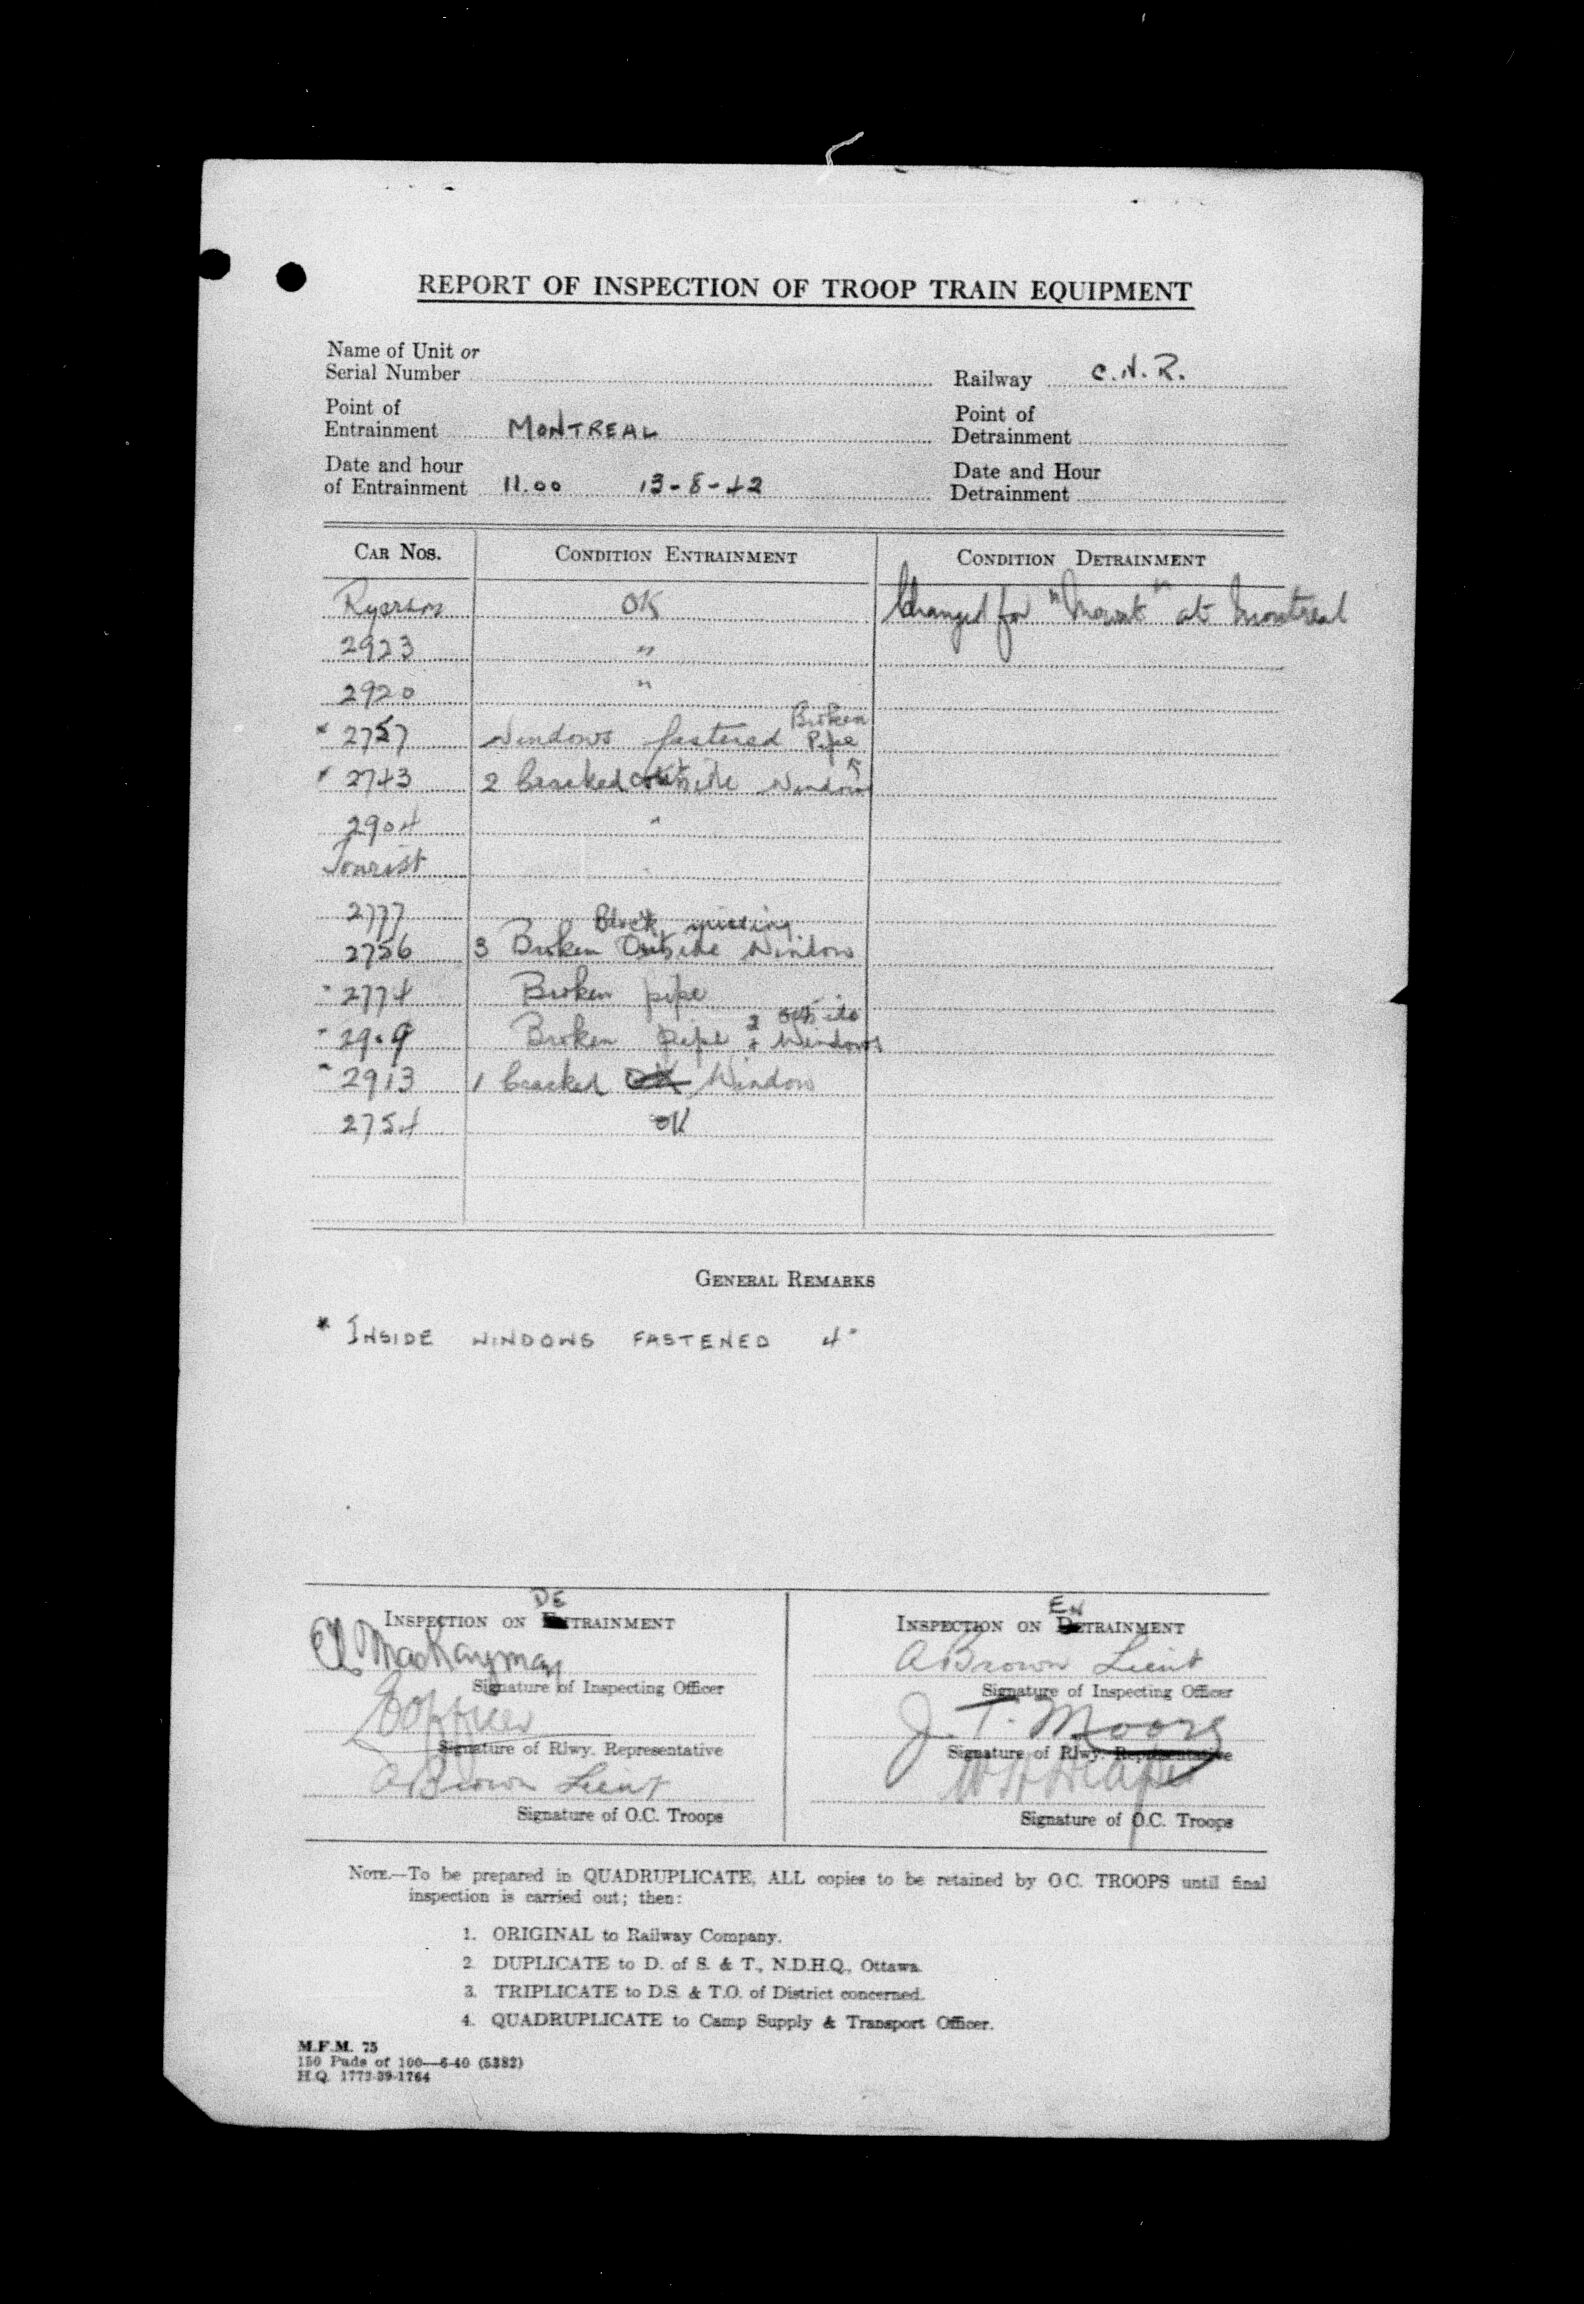 REPORT OF INSPECTION OF TROOP TRAIN EQUIPMENT
Name of Unit or
Serial Number
Railway C.N.R.
Point of
Entrainment MONTREAL
Point of
Detrainment
Date and hour
of Entrainment 11.00 13-8-42
Date and Hour
Detrainment
CAR NOS. CONDITION ENTRAINMENT CONDITION DETRAINMENT
Ryerson OK Changed for "Mowat" at Montreal
2923 "
2920 "
* 2757 Windows fastened Broken Pipe
* 2743 2 Cracked outside Windows
2904 "
Tourist
2777 Block missing
2756 3 Broken Outside Window
" 2774 Broken pipe
" 2909 Broken pipe & 2 outside Windows
" 2913 1 Cracked OK Window
2754 OK
GENERAL REMARKS
* INSIDE WINDOWS FASTENED 4"
INSPECTION ON DETRAINMENT
INSPECTION ON ENTRAINMENT
A Brown Lieut
Signature of Inspecting Officer
Signature of Inspecting Officer
J. T. Moore
Signature of Rlwy. Representative
Signature of Rlwy. Representative
A Brown Lieut
Signature of O.C. Troops
Signature of O.C. Troops
NOTE.—To be prepared in QUADRUPLICATE, ALL copies to be retained by O.C. TROOPS until final
inspection is carried out; then:
1. ORIGINAL to Railway Company.
2. DUPLICATE to D. of S. & T., N.D.H.Q., Ottawa.
3. TRIPLICATE to D.S. & T.O. of District concerned.
4. QUADRUPLICATE to Camp Supply & Transport Officer.
M.F.M. 75
150 Pads of 100—6-40 (5382)
H.Q. 1772-39-1764